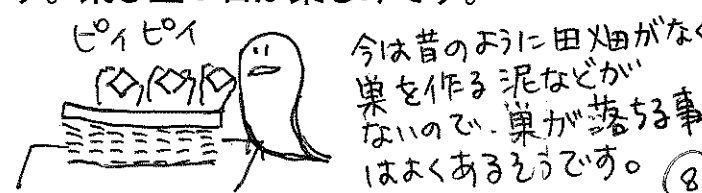 ピィピィ
今は昔のように田畑がなく
巣を作る泥などが
ないので、巣が落ちる事
はよくあるそうです。
⑧